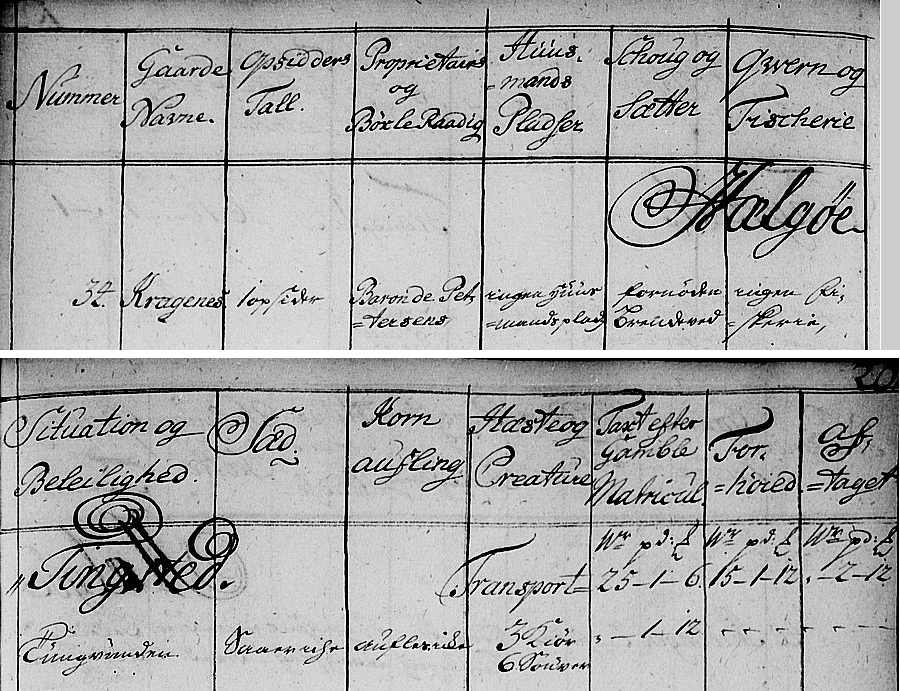 Nummer
Gaarde
Navne.
Opsidders
Tall.
Proprietairs
og
Böxle Raadig
Huus-
=mands
Pladser
Schoug og
Sætter
Qwern og
Fischerie
Hælgöe-
34.
Kragenes
1 opsider
Baron de Pet
=tersens
ingen Huus
=mandsplads
fornöden
Brendeved
ingen fi-
=skerie,
20
Situation og
Beleilighed.
Sæd.
Korn
aufling
Hæste og
Creature
Taxt efter
Gamble
Matricul
For,
=höied
af,
=taget
Tingsted.
Transport=
25-1-6.
15-1-12.
-2-12
Tungvunden
Saaer iche
aufler iche
3 Kiör
6 Souver
-1-12